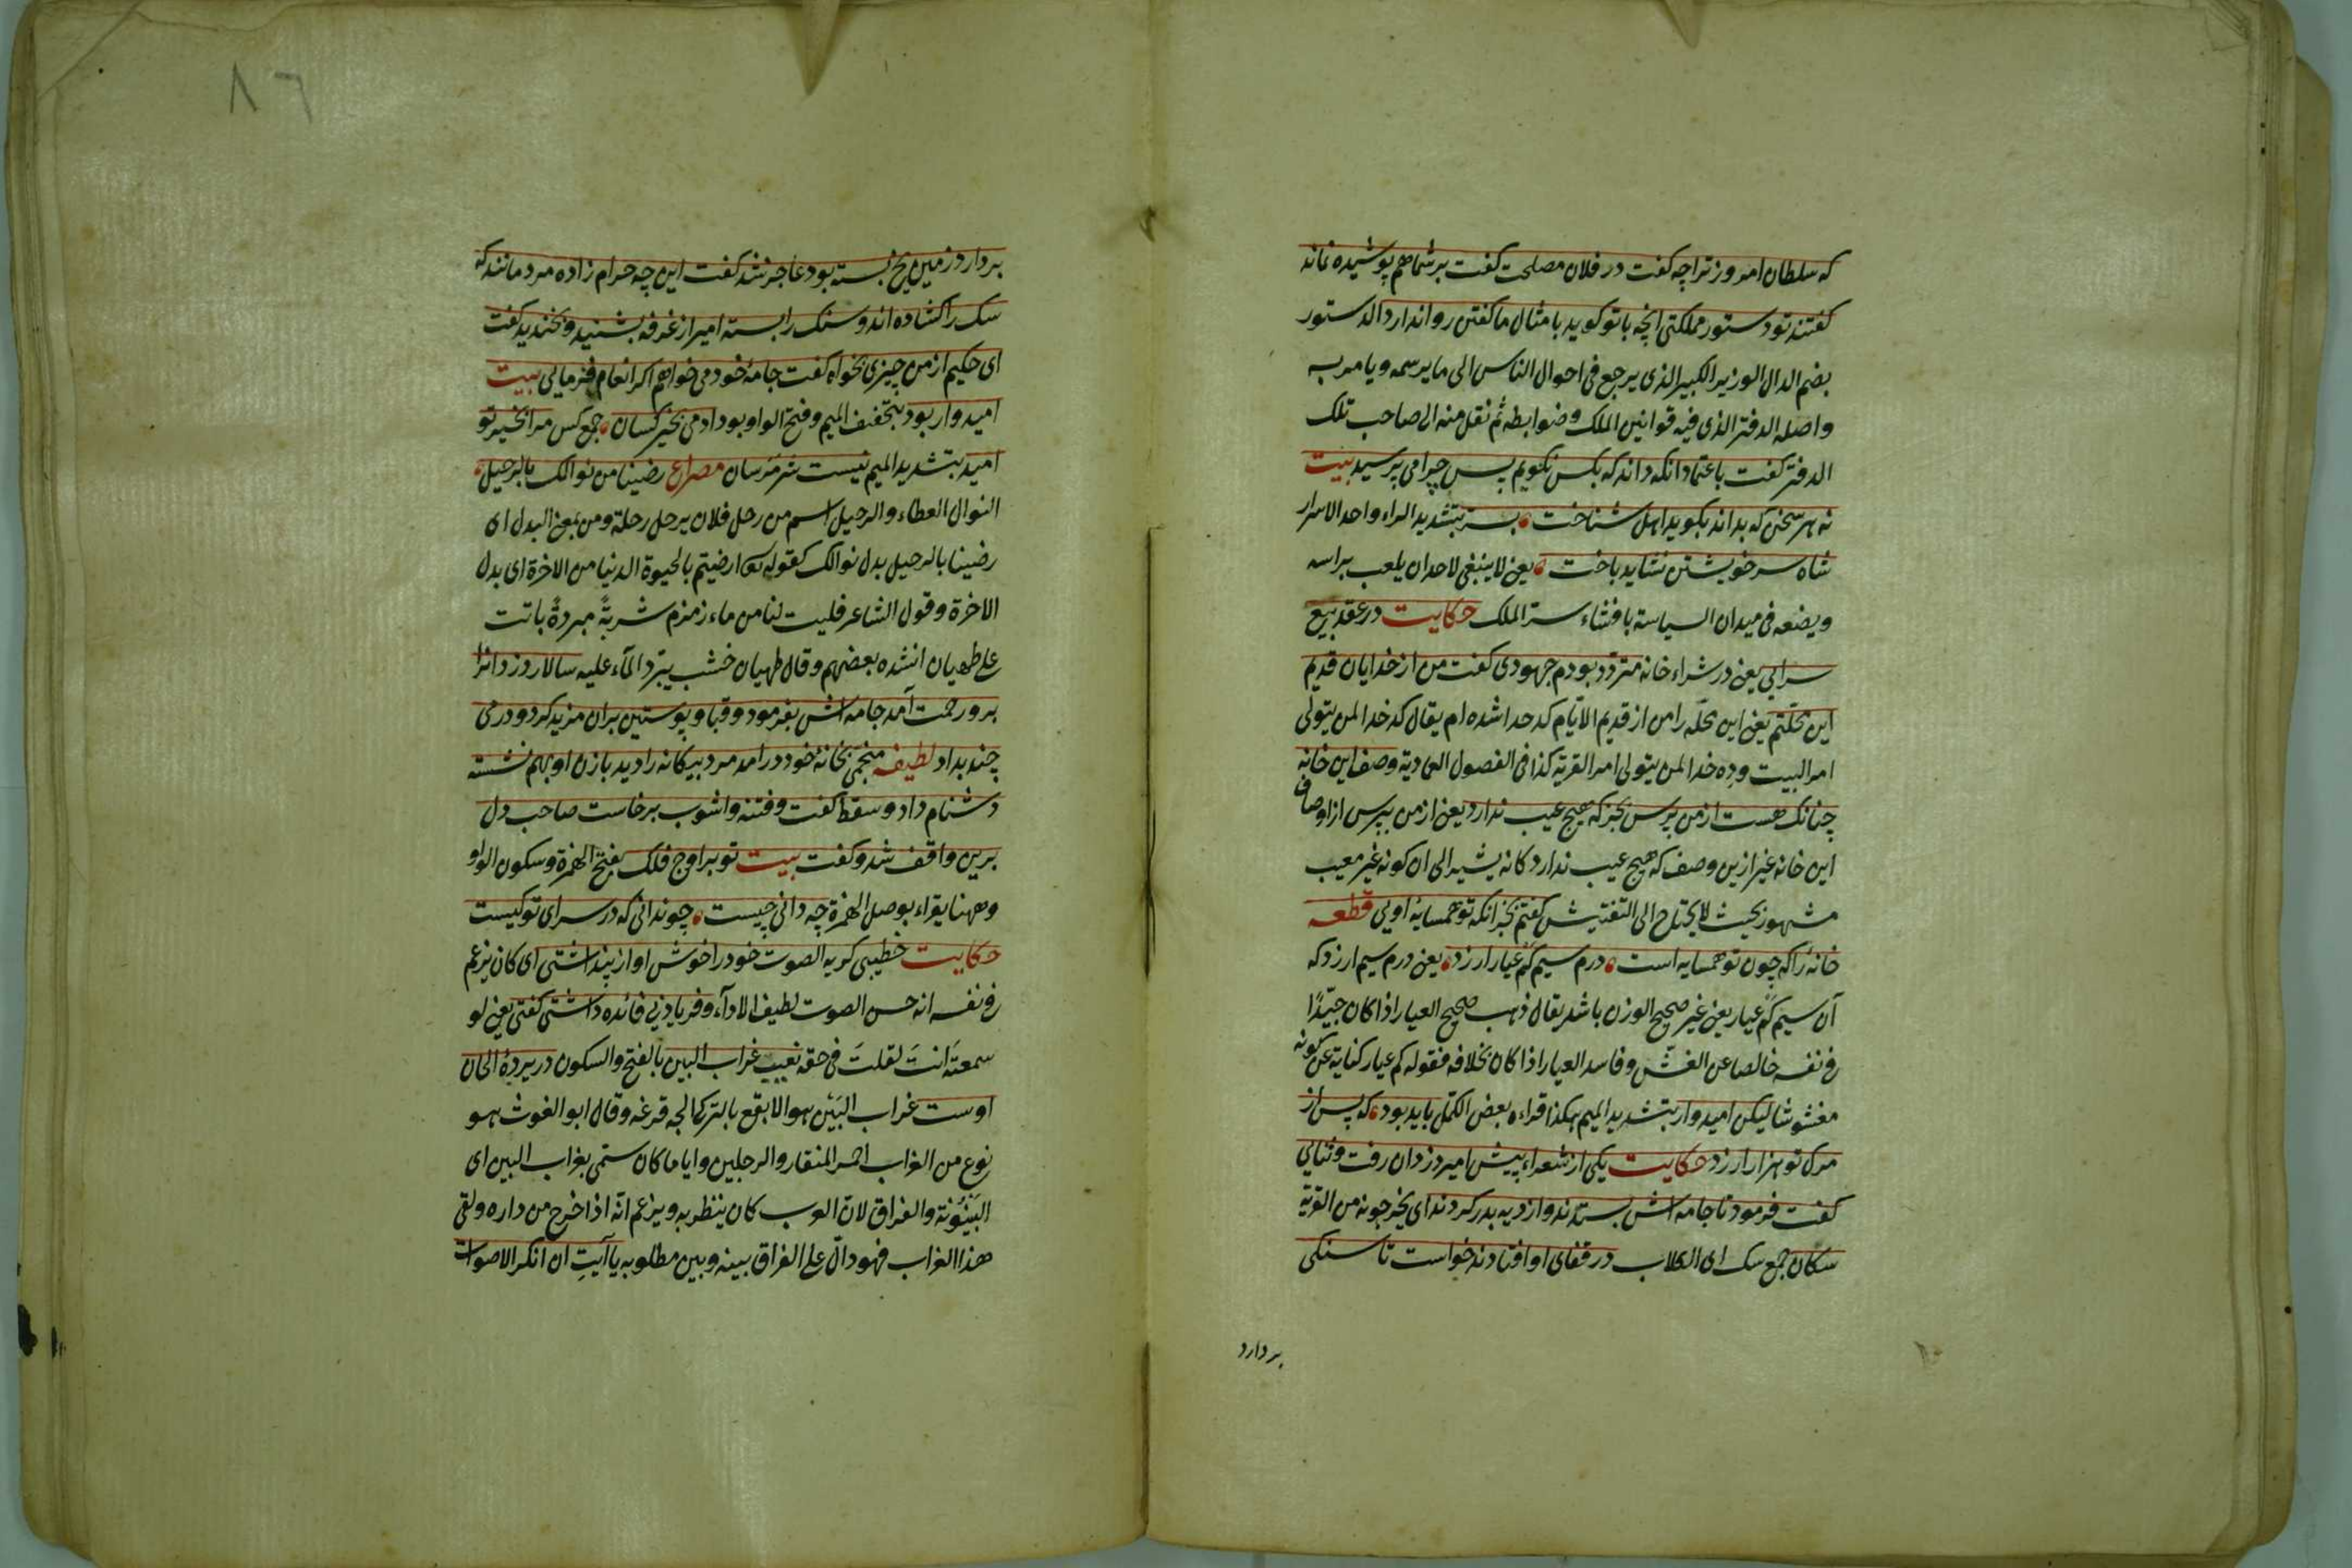 که سلطان امروز ترا چه کفت در فلان مصلحت کفت بر شما هم پوشیده نماند
کفتند تو دستور مملکتی انچه با تو کوید با مثال ما کفتن روا ندارد الدستور
بضم الدال الوزیر الکبیر الذی یرجع فی احوال الناس الی ما یرسمه ویامر به
واصله الدفتر الذی فیه قوانین الملک وضوابطه ثم نقل منه الی صاحب تلک
الدفتر کفت باعتماد انکه داند که بکس نکویم پس چرا می پرسید بیت
نه هر سخن که بداند بکوید اهل شناخت بسر بتشدید الراء واحد الاسرار
شاه سر خویشتن نشاید باخت یعنی لا ینبغی لاحد ان یلعب براسه
ویضعه فی میدان السیاسة بافشاء سر الملک حکایت در عقد بیع
سرایی یعنی در شراء خانه متردد بودم جهودی کفت من از خدایان قدیم
این محلتم یعنی این محله را من از قدیم الایام کدخدا شده ام یقال کدخدا لمن یتولی
امر البیت وده خدا لمن یتولی امر القریة کذا فی الفصول العمادیة وصف این خانه
چنانک هست از من پرس بخر که هیچ عیب ندارد یعنی از من بپرس از اوصاف
این خانه غیر ازین وصف که هیچ عیب ندارد کانه یشیر الی ان کونه غیر معیب
مشهور بحیث لا یحتاج الی التفتیش کفتم بجز انکه تو همسایهٔ اویی قطعه
خانهٔ را که چون تو همسایه است درم سیم کم عیار ارزد یعنی درم سیم ارزد که
آن سیم کم عیار یعنی غیر صحیح الوزن باشد یقال ذهب صحیح العیار اذا کان جیّدًا
فی نفسه خالصا عن الغش وفاسد العیار اذا کان بخلافه فقوله کم عیار کنایة عن کونه
مغشوشا لیکن امیدوار بتشدید المیم هکذا قراءه بعض الکمّل باید بود که پس از
مرک تو هزار ارزد حکایت یکی از شعراء پیش امیر دزدان رفت وثنایی
کفت فرمود تا جامه اش بستدند واز دیه بدر کردند ای یخرجونه من القریة
سکان جمع سک ای الکلاب در قفای او افتادند خواست تا سنکی
بردارد
٨٦
بردارد زمین یخ بسته بود عاجز شد کفت این چه حرام زاده مردمانند که
سک را کشاده اند وسنک را بسته امیر از غرفه بشنید وبخندید کفت
ای حکیم از من چیزی بخواه کفت جامهٔ خود می خواهم اکر انعام فرمایی بیت
امیدوار بود بتخفیف المیم وفتح الواو بود ادمی بخیر کسان جمع کس مرا بخیر تو
امید بتشدید المیم نیست شر مرسان مصراع رضینا من نوالک بالرحیل
النوال العطاء والرحیل اسم من رحل فلان یرحل رحلة ومن بمعنی البدل ای
رضینا بالرحیل بدل نوالک کقوله تعا ارضیتم بالحیوة الدنیا من الاخرة ای بدل
الاخرة وقول الشاعر فلیت لنا من ماء زمزم شربةً مبردةً باتت
علی طهیان انشده بعضهم وقال طهیان خشب یبرد الماء علیه سالار دزدانرا
برو رحمت آمد جامه اش بفرمود وقبا وپوستین بران مزید کرد ودرمی
چند بداد لطیفه منجمی بخانهٔ خود در امد مرد بیکانه را دید با زن او بهم نشسته
دشنام داد وسقط کفت وفتنه واشوب برخاست صاحب دل
برین واقف شد وکفت بیت تو بر اوج فلک بفتح الهمزة وسکون الواو
وههنا یقراء بوصل الهمزة چه دانی چیست چو ندانی که در سرای تو کیست
حکایت خطیبی کریه الصوت خود را خوش اواز پنداشتی ای کان یزعم
فی نفسه انه حسن الصوت لطیف الاداء وفریاد بی فائده داشتی کفتی یعنی لو
سمعتَه انتَ لقلتَ فی حقه نعیب غراب البین بالفتح والسکون در پردهٔ الحان
اوست غراب البَیْن هو الابقع بالترکی الجه قرغه وقال ابو الغوث هو
نوع من الغراب احمر المنقار والرجلین وایا ما کان سمّی بغراب البین ای
البَیْنُونة والفراق لان العرب کان ینظر به ویزعم انّه اذا خرج من داره ولقی
هذا الغراب فهو دالّ علی الفراق بینه وبین مطلوبه یا آیتِ ان انکر الاصوات